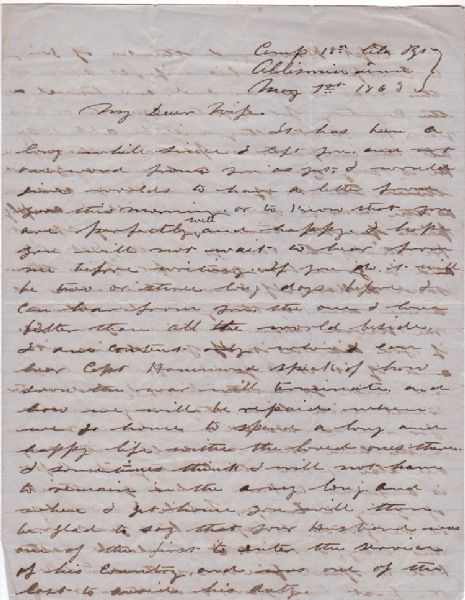 Camp 18th Ala Rgt
Allisonia Tenn
May 1st 1863
My Dear Wife
It has been a
long while since I left you and not
one word from you as yet, I would
give worlds to have a letter from
you this morning or to know that you
are perfectly well and happy. I hope
you will not wait to hear from
me before writing. If you do it will
be two or three long days before I
can hear from you, the one I love
better than all the world beside.
I am content when I can
hear Capt Hammond speak of how
soon the war will terminate and
how we will be repaid when
we go home to spend a long and
happy life with the loved ones there.
I sometimes think I will not have
to remain in the army long, and
when I get home you will then
be glad to say that your Husband was
one of the first to enter the service
of his Country, and was one of the
last to avoid his duty.